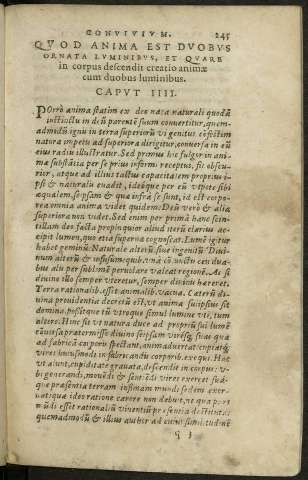 CONVIVIVM. 245
QVOD ANIMA EST DVOBVS
ORNATA LVMINIBVS, ET QVARE
in corpus descendit creatio animæ
cum duobus luminibus.
CAPVT IIII.
POrrò anima statim ex deo nata naturali quodã
instinctu in deũ parentẽ suum conuertitur, quem-
admodũ ignis in terra superiorũ vi genitus confestim
naturæ impetu ad superiora dirigitur, conuersa in eũ
eius radiis illustratur. Sed primus hic fulgor in ani-
mæ substãtia per se prius informi receptus, fit obscu-
rior, atque ad illius tractus capacitatem proprius i-
psi & naturalis euadit, ideóque per eũ vtpote sibi
æqualem, seipsam & quæ infra se sunt, id est corpo-
rea omnia videt quidem. Deũ verò & alia
superiora non videt. Sed enim per primã hanc scin-
tillam deo facta propinquior aliud iterũ clarius ac-
cipit lumen, quo etiã superna cognoscat. Lumẽ igitur
habet geminũ. Naturale alterũ siue ingenitũ. Diui-
num alterũ & infusum: quibus vnà cõiunctis ceu dua-
bus alis per sublimẽ peruolare valeat regionẽ. At si
diuino illo semper vteretur, semper diuinis hæreret.
Terra rationalibus esset animalibus vacua. Cæterũ di-
uina prouidentia decretũ est, vt anima sui ipsius sit
domina, possitque tũ vtroque simul lumine vti, tum
altero. Hinc fit vt natura duce ad propriũ sui lumẽ
conuersa prætermisso diuino seipsam viresque suas quæ
ad fabricã corporis spectant, animaduertat, cupiatque
vires huiusmodi in fabricandis corporibus exequi. Hac
vt aiunt, cupiditate grauata, descendit in corpus: v-
bi generandi, mouẽdi & sentiẽdi vires exercet sua-
que præsentia terram infimam mundi sedem exor-
nat: quæ ideo ratione carere non debuit, ne qua pars
mũdi esset rationaliũ viuentiũ præsentia destituta:
quemadmodũ & illius author ad cuius similitudinẽ
q 3